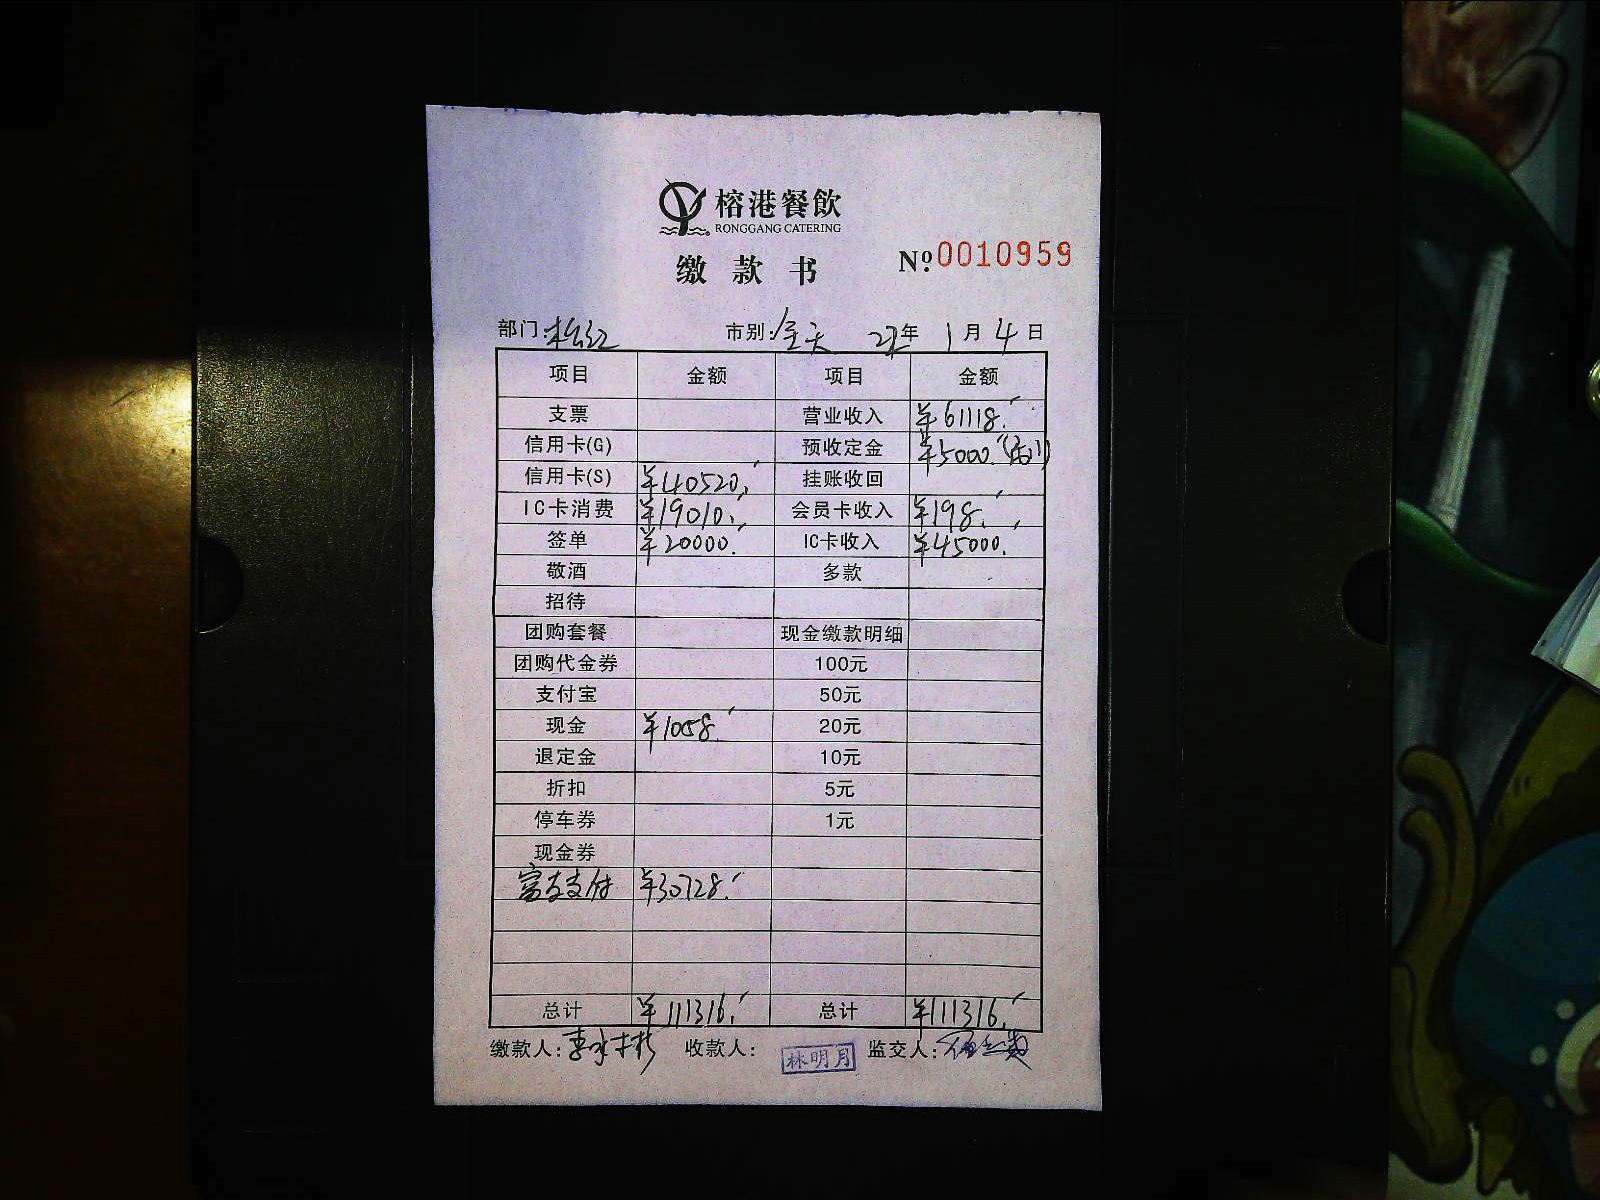 榕港餐飲
RONGGANG CATERING
缴款书 No.0010959
部门: 松江 市别: 全天 22年 1月 4日
项目 金额 项目 金额
支票 营业收入 ¥61118.
信用卡(G) 预收定金 ¥5000.
信用卡(S) ¥40520. 挂账收回
IC卡消费 ¥19010. 会员卡收入 ¥198.
签单 ¥20000. IC卡收入 ¥45000.
敬酒 多款
招待
团购套餐 现金缴款明细
团购代金券 100元
支付宝 50元
现金 ¥1058. 20元
退定金 10元
折扣 5元
停车券 1元
现金券
富友支付 ¥30728.
总计 ¥111316. 总计 ¥111316.
缴款人: 收款人: 林明月 监交人: